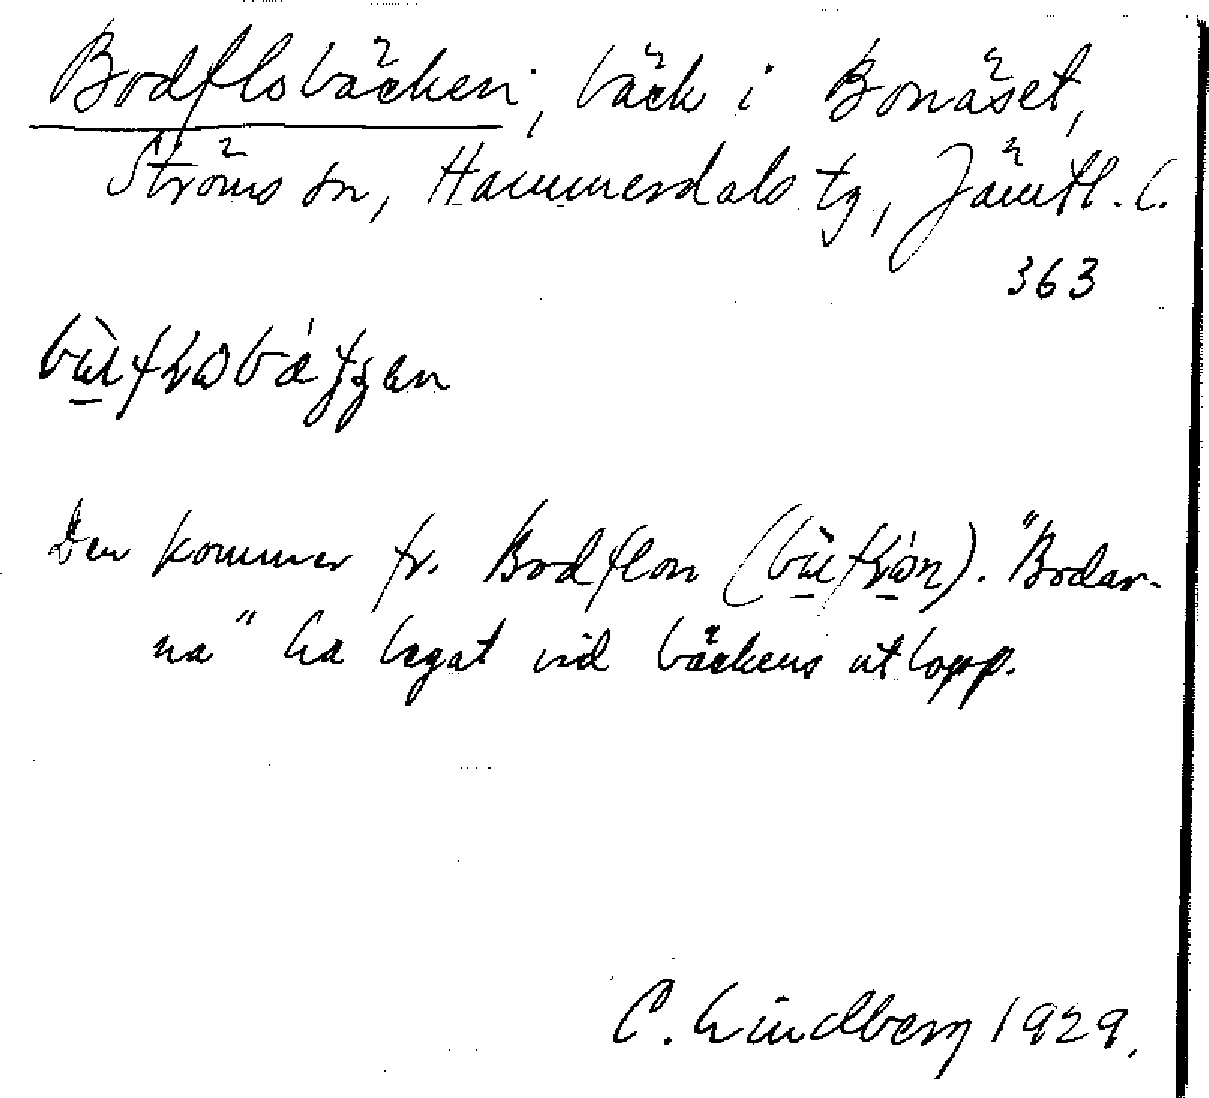 Bodflobäcken, bäck i Bonäset,
Ströms sn, Hammerdals tg, Jämtl. l.
363
Den kommer fr. Bodflon. "Bodar-
na" ha legat vid bäckens utlopp.
C. Lindberg 1929.